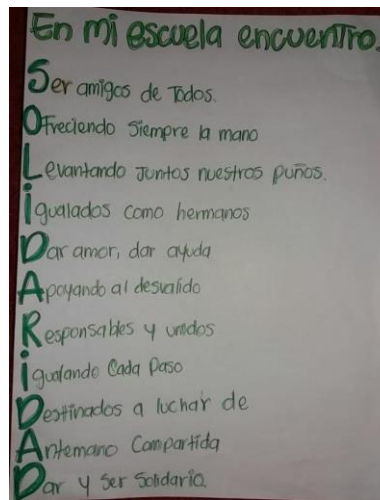 En mi escuela encuentro.
Ser amigos de Todos.
Ofreciendo siempre la mano
Levantando Juntos nuestros puños.
igualados como hermanos
Dar amor, dar ayuda
Apoyando al desvalido
Responsables y unidos
igualando Cada Paso
Destinados a luchar de
Antemano Compartida
Dar y ser Solidario.